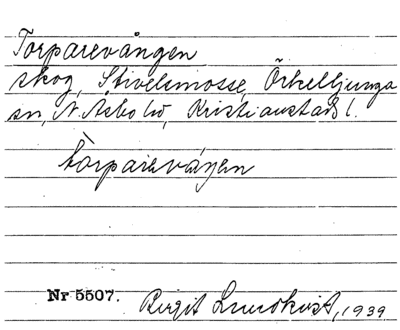 Torparevången
skog, Stivelsmosse, Örkelljunga
sn, N. Åsbo hd, Kristianstads l.
tòrpareváŋen
Nr 5507. Birgit Lundkvist, 1939